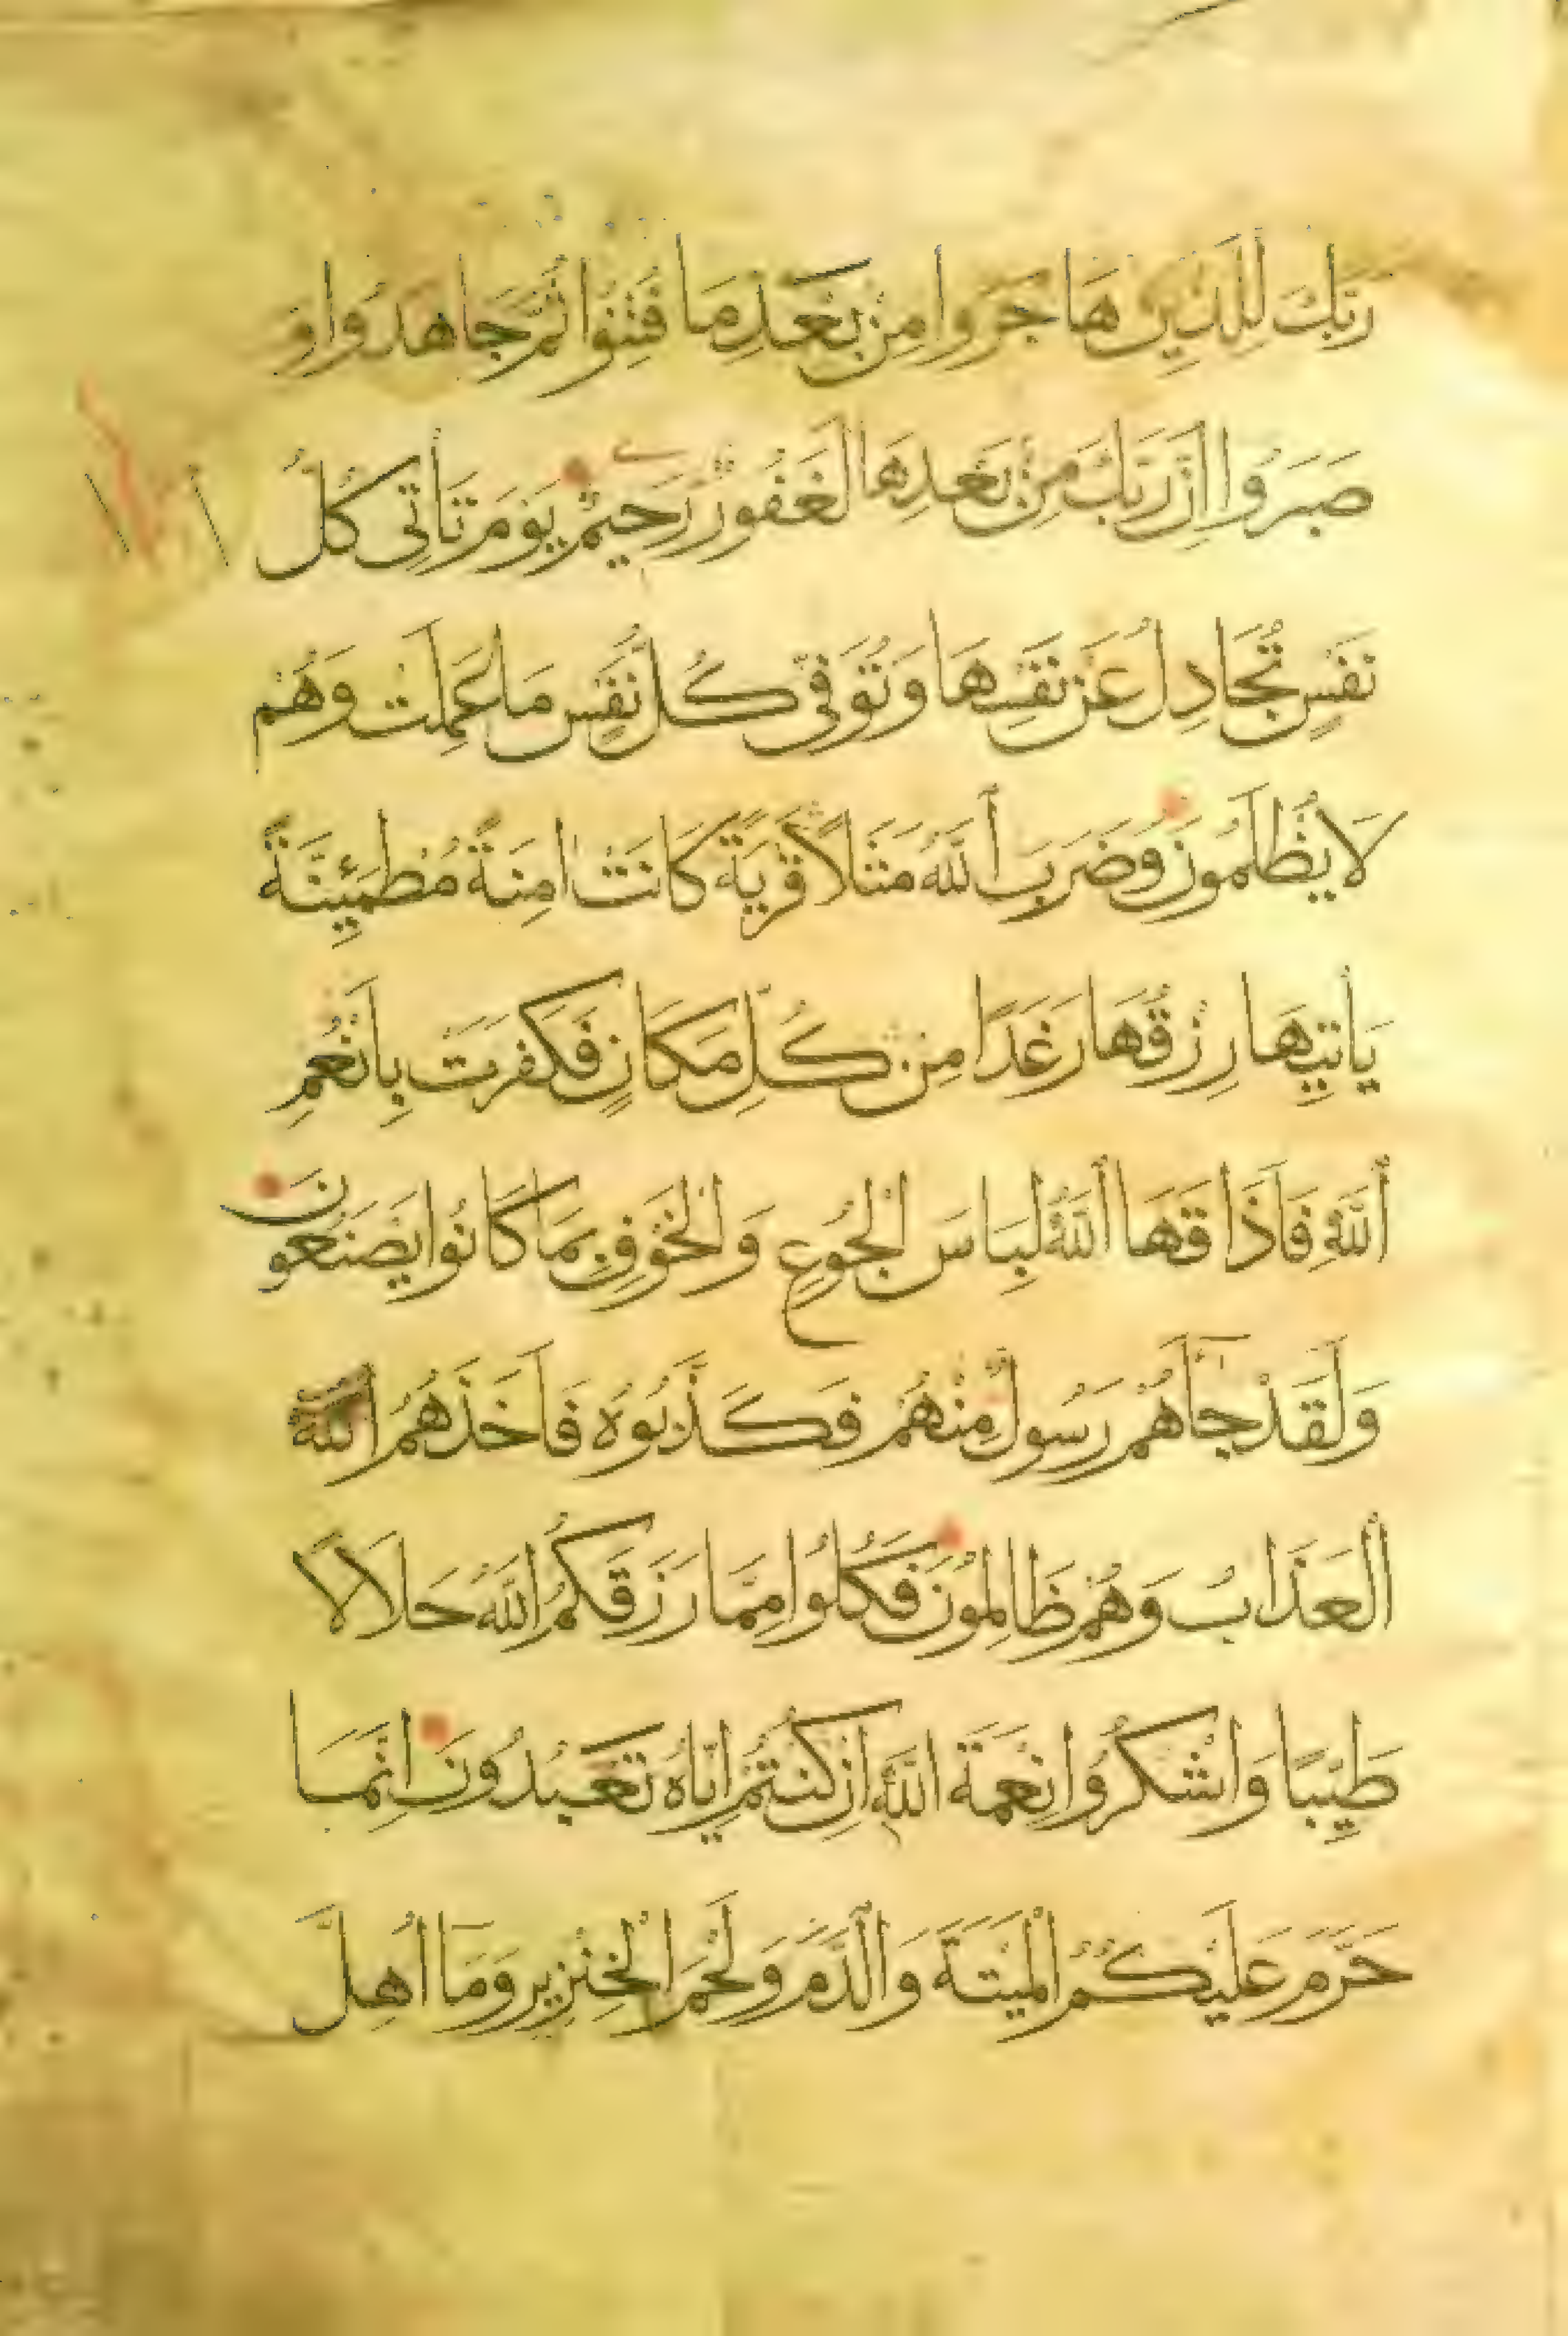 رَبَّكَ لِلَّذِينَ هَاجَرُوا مِنْ بَعْدِ مَا فُتِنُوا ثُمَّ جَاهَدُوا وَ
صَبَرُوا اِنَّ رَبَّكَ مِنْ بَعْدِهَا لَغَفُورٌ رَحِيمٌ يَوْمَ تَأتِى كُلُّ
نَفْسٍ تُجَادِلُ عَنْ نَفْسِهَا وَتُوَفّٰى كُلُّ نَفْسٍ مَا عَمِلَتْ وَهُمْ
لَا يُظْلَمُونَ وَضَرَبَ أللَّهُ مَثَلًا قَرْيَةً كَانَتْ اٰمِنَةً مُطْمَئِنَّةً
يَاتِيهَا رِزْقُهَا رَغَدًا مِنْ كُلِّ مَكَانٍ فَكَفَرَتْ بِاَنْعُمِ
أللَّهِ فَاَذَاقَهَا أللَّهُ لِبَاسَ الْجُوعِ وَالْخَوْفِ بِمَا كَانُوا يَصْنَعُونَ
وَلَقَدْ جَآءَهُمْ رَسُولٌ مِنْهُمْ فَكَذَّبُوهُ فَاَخَذَهُمُ اللَّهُ
ألْعَذَابُ وَهُمْ ظَالِمُونَ فَكُلُوا مِمَّا رَزَقَكُمُ اللَّهُ حَلَالًا
طَيِّبًا وَاشْكُرُوا نِعْمَةَ اللَّهِ اِنْ كُنْتُمْ اِيَّاهُ تَعْبُدُونَ اِنَّمَا
حَرَّمَ عَلَيْكُمُ الْمَيْتَةَ وَالدَّمَ وَلَحْمَ الْخِنْزِيرِ وَمَا اُهِلَّ